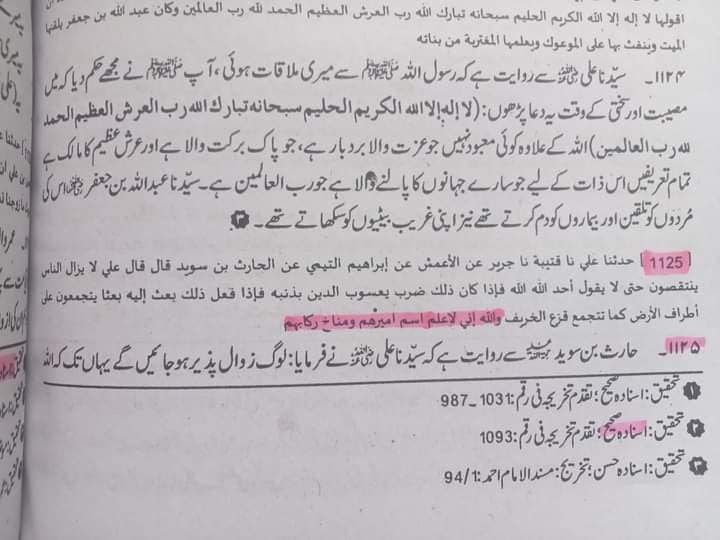 اقولها لا إله إلا الله الكريم الحليم سبحانه تبارك الله رب العرش العظيم الحمد لله رب العالمين وكان عبد الله بن جعفر يلقنها
الميت وينفث بها على الموعوك ويعلمها المغتربة من بناته
۱۱۲۴۔ سیّدنا علی رضی اللہ عنہ سے روایت ہے کہ رسول اللہ ﷺ سے میری ملاقات ہوئی، آپ ﷺ نے مجھے حکم دیا کہ میں
مصیبت اور سختی کے وقت یہ دعا پڑھوں: (لا إله إلا الله الكريم الحليم سبحانه تبارك الله رب العرش العظيم الحمد
لله رب العالمين) اللہ کے علاوہ کوئی معبود نہیں جو عزت والا بردبار ہے، جو پاک برکت والا ہے اور عرش عظیم کا مالک ہے
تمام تعریفیں اس ذات کے لیے جو سارے جہانوں کا پالنے والا ہے جو رب العالمین ہے۔ سیّدنا عبداللہ بن جعفر رضی اللہ عنہ اس کی
مُردوں کو تلقین اور بیماروں کو دم کرتے تھے نیز اپنی غریب بیٹیوں کو سکھاتے تھے۔ ❸
[1125] حدثنا علي نا قتيبة نا جرير عن الأعمش عن إبراهيم التيمي عن الحارث بن سويد قال قال علي لا يزال الناس
ينتقصون حتى لا يقول أحد الله الله فإذا كان ذلك ضرب يعسوب الدين بذنبه فإذا فعل ذلك بعث إليه بعثا يتجمعون على
أطراف الأرض كما تتجمع قزع الخريف والله إني لاعلم اسم اميرهم ومناخ ركابهم
۱۱۲۵۔ حارث بن سوید رحمہ اللہ سے روایت ہے کہ سیّدنا علی رضی اللہ عنہ نے فرمایا: لوگ زوال پذیر ہو جائیں گے یہاں تک کہ اللہ
❶ تحقیق: اسنادہ صحیح؛ تقدم تخریجہ فی رقم: 1031۔987
❷ تحقیق: اسنادہ صحیح؛ تقدم تخریجہ فی رقم: 1093
❸ تحقیق: اسنادہ حسن؛ تخریج: مسند الامام احمد: 94/1